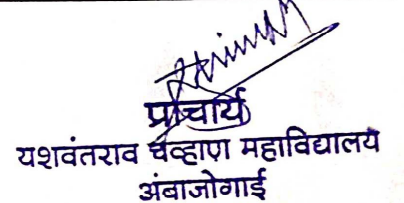 प्राचार्य
यशवंतराव चव्हाण महाविद्यालय
अंबाजोगाई